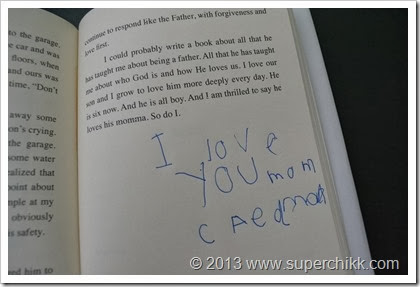 to the garage.
e car and was
floors, when
and ours was
time, "Don't
away some
on's crying.
the garage.
some water
ealized that
point about
mple at my
obviously
is safety.
ned him to
continue to respond like the Father, with forgiveness and
love first.
I could probably write a book about all that he
has taught me about being a father. All that he has taught
me about who God is and how He loves us. I love our
son and I grow to love him more deeply every day. He
is six now. And he is all boy. And I am thrilled to say he
loves his momma. So do I.
I love
YOU mom
CAedmon
© 2013 www.superchikk.com